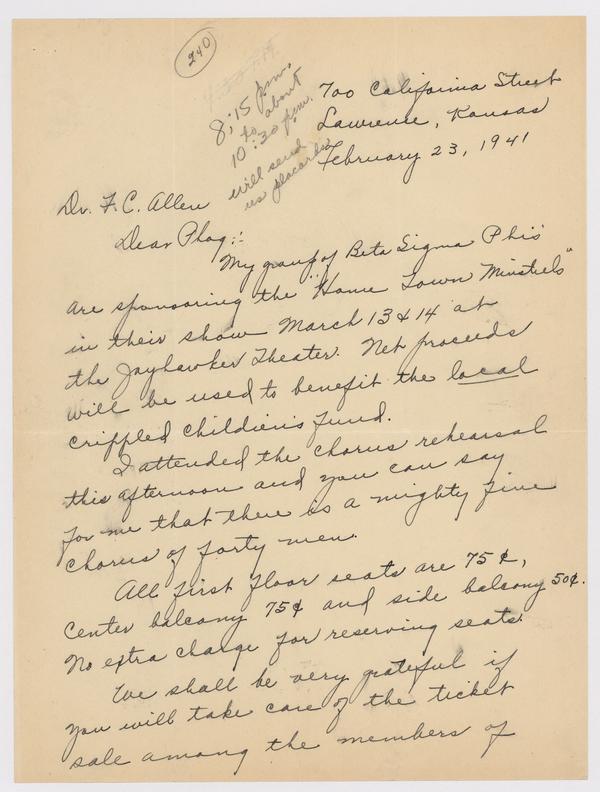 240
8:15 p.m.
to about
10:30 p.m.
will send
us placards
700 California Street
Lawrence, Kansas
February 23, 1941
Dr. F. C. Allen
Dear Phog:-
My group of Beta Sigma Phis
are sponsoring the "Home Town Minstrels"
in their show March 13 & 14 at
the Jayhawker Theater. Net proceeds
will be used to benefit the local
crippled children's fund.
I attended the chorus rehearsal
this afternoon and you can say
for me that there is a mighty fine
chorus of forty men.
All first floor seats are 75¢,
center balcony 75¢ and side balcony 50¢.
No extra charge for reserving seats.
We shall be very grateful if
you will take care of the ticket
sale among the members of